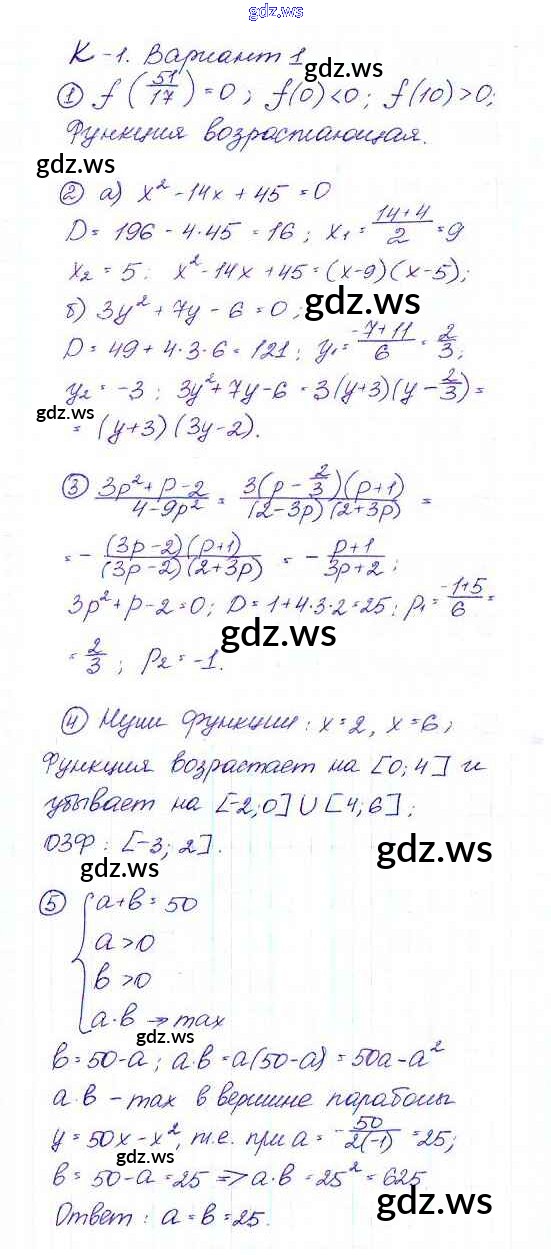 gdz.ws
К-1. Вариант 1
① f(51/17) = 0; f(0) < 0; f(10) > 0;
gdz.ws
Функция возрастающая.
gdz.ws
② а) x² - 14x + 45 = 0
D = 196 - 4·45 = 16; x₁ = (14+4)/2 = 9
x₂ = 5; x² - 14x + 45 = (x-9)(x-5);
б) 3y² + 7y - 6 = 0;
gdz.ws
D = 49 + 4·3·6 = 121; y₁ = (-7+11)/6 = 2/3;
y₂ = -3; 3y² + 7y - 6 = 3(y+3)(y - 2/3) =
gdz.ws
= (y+3)(3y-2).
③ (3p² + p - 2)/(4 - 9p²) = 3(p - 2/3)(p+1)/((2-3p)(2+3p)) =
= - (3p-2)(p+1)/((3p-2)(2+3p)) = - (p+1)/(3p+2);
3p² + p - 2 = 0; D = 1 + 4·3·2 = 25; p₁ = (-1+5)/6 =
gdz.ws
= 2/3; p₂ = -1.
④ Нули функции: x = 2, x = 6;
Функция возрастает на [0; 4] и
убывает на [-2; 0] ∪ [4; 6];
ОЗФ: [-3; 2].
gdz.ws
gdz.ws
⑤ { a + b = 50
a > 0
b > 0
a·b → max
gdz.ws
b = 50 - a; a·b = a(50-a) = 50a - a²
a·b - max в вершине параболы
y = 50x - x², т.е. при a = - 50/(2(-1)) = 25;
gdz.ws
b = 50 - a = 25 ⇒ a·b = 25² = 625
Ответ: a = b = 25.
gdz.ws